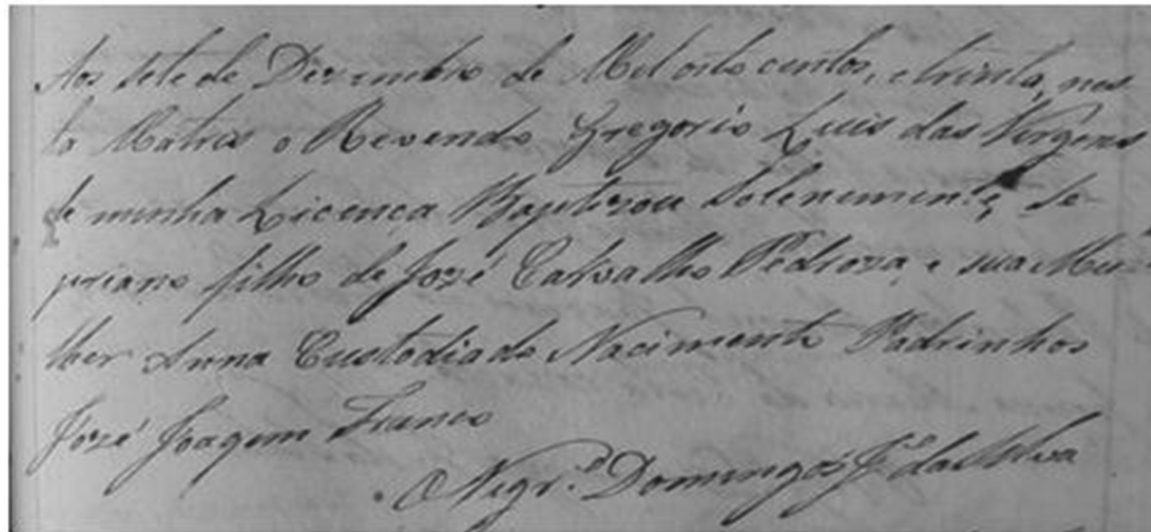 Aos sete de Dezembro de Mil oito centos, e trinta, nes
ta Matris o Revendo Gregorio Luis das Virgens
de minha Licença Baptizou Solenemente, Se
priano filho de José Carvalho Pedroza e sua Mu
lher Anna Custodia do Nacimento Padrinhos
José Joaqem Franco
O Vigr.º Domingos J.e da Silva